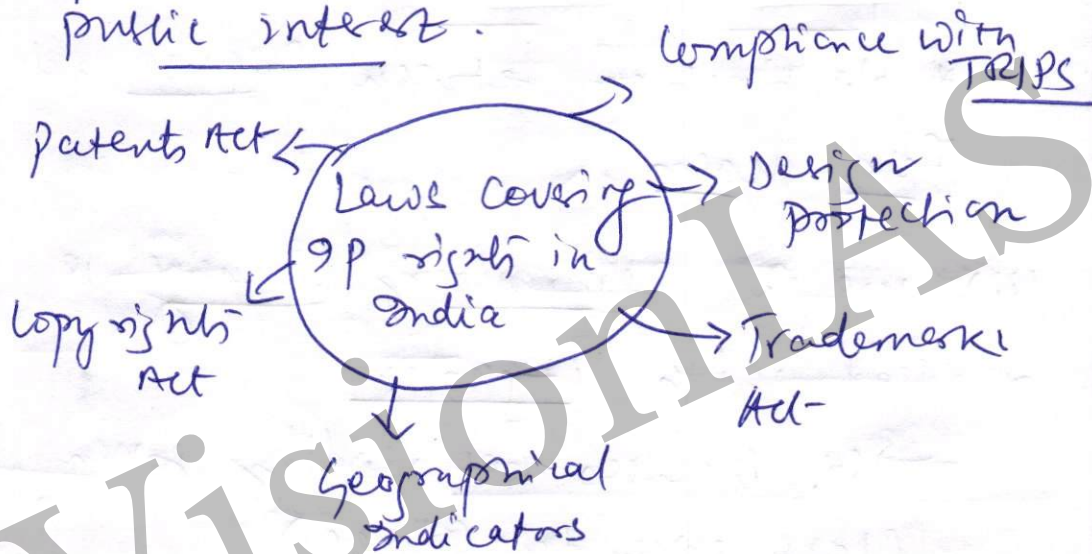 public interest.
Compliance with
TRIPS
Patents Act
Laws covering
IP rights in
India
Design
protection
Copyrights
Act
Trademarks
Act
Geographical
Indicators
VisionIAS